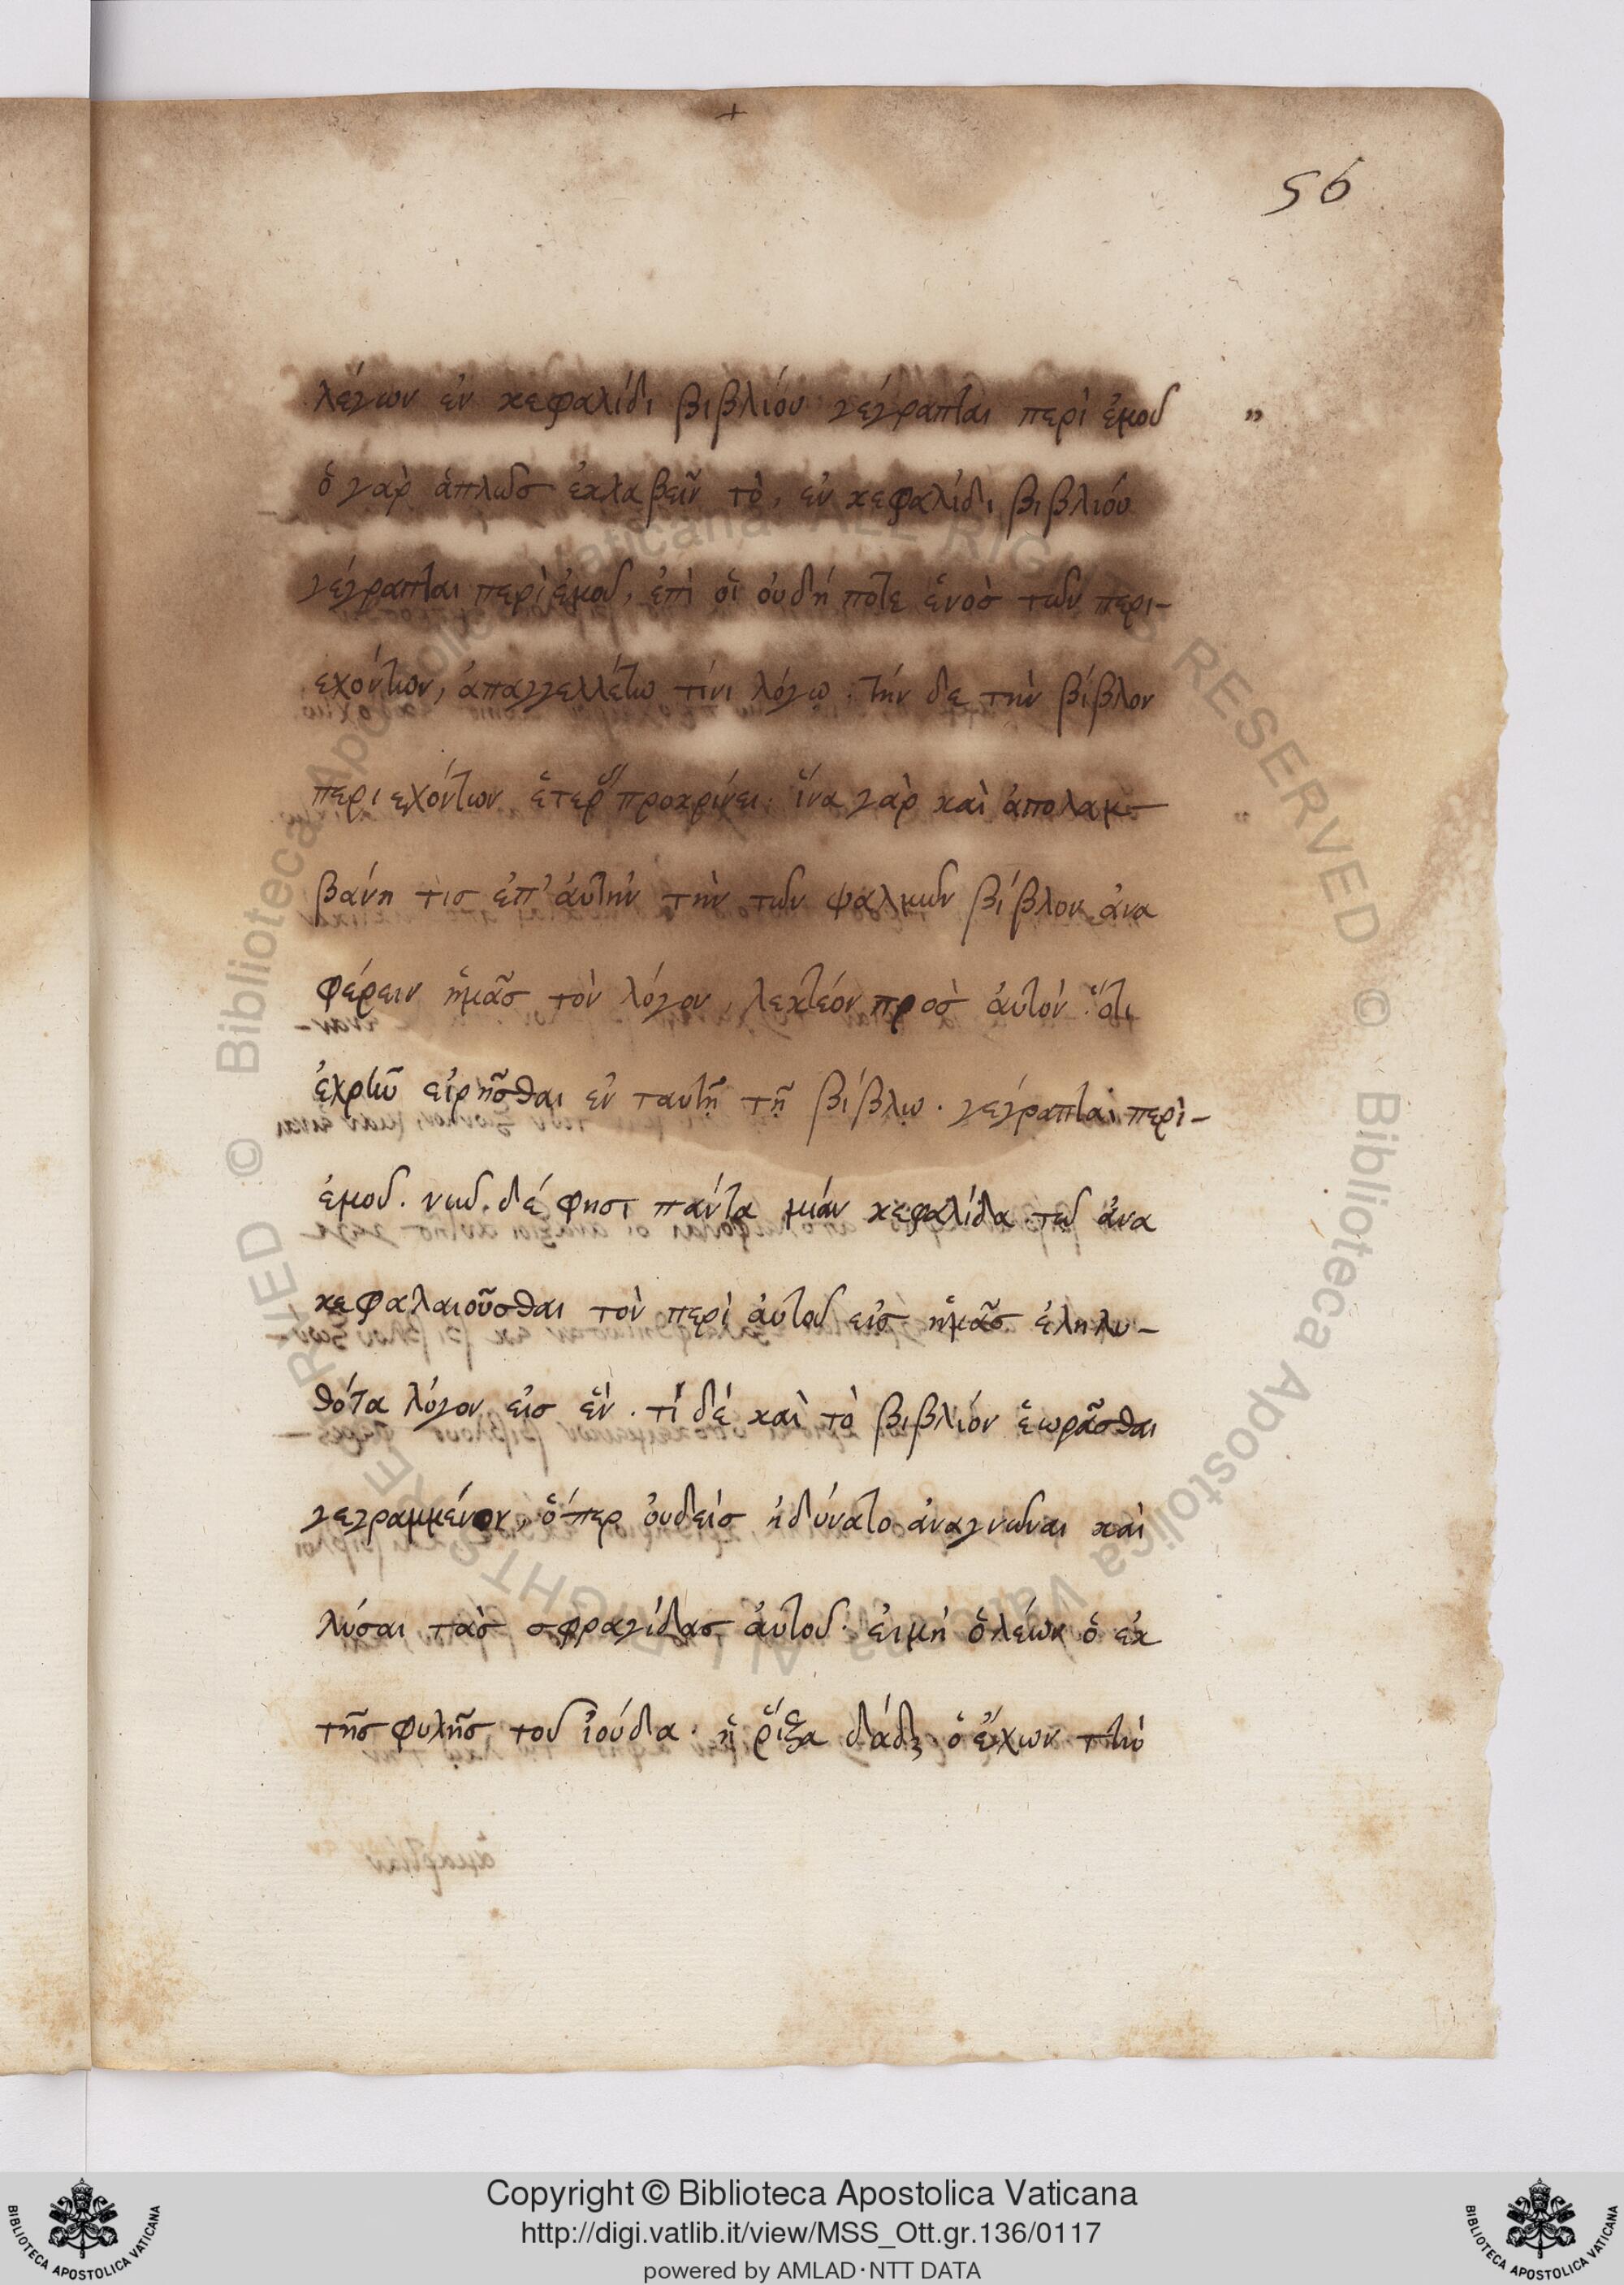 +
56
λέγων ἐν κεφαλίδι βιβλίου γέγραπται περὶ ἐμοῦ "
ὁ γὰρ ἁπλῶσ ἐκλαβεῖν τὸ, ἐν κεφαλίδι βιβλίου
γέγραπται περὶ ἐμοῦ, ἐπὶ οἱ οὐδή ποτε ἑνοσ τῶν περι-
εχόντων, ἀπαγγελλέτω τίνι λόγω. τήν δε τὴν βίβλον
περιεχόντων ἑτερ προκρίνει. ἵνα γὰρ καὶ ἀπολαμ-
βάνη τισ ἐπ' ἀυτὴν τὴν τῶν ψαλμῶν βίβλον ἀνα
φέρειν ἡμᾶσ τὸν λόγον, λεκτέον πρὸσ ἀυτὸν ὅτι
ἐχρῆν εἰρῆσθαι ἐν ταυτῆ τῆ βίβλω. γέγραπται περὶ-
ἐμοῦ. νῦν. δέ φησι πάντα μιάν κεφαλίδα τῶ ἀνα
κεφαλαιοῦσθαι τὸν περὶ ἀυτοῦ εἰσ ἡμᾶσ ἐληλυ-
θότα λόγον εἰσ ἓν. τί δέ καὶ τὸ βιβλίον ἑωρᾶσθαι
γεγραμμένον, ὅπερ ὀυδείσ ἠδύνατο ἀναγνῶναι καὶ
λύσαι τὰσ σφραγίδασ ἀυτοῦ. ἐιμή ὁ λέων ὁ ἐκ
τῆσ φυλῆσ τοῦ ἰούδα. ἡ ῥίζα δάδ ὁ ἔχων τὴν
Copyright © Biblioteca Apostolica Vaticana
http://digi.vatlib.it/view/MSS_Ott.gr.136/0117
powered by AMLAD·NTT DATA
BIBLIOTECA APOSTOLICA VATICANA
BIBLIOTECA APOSTOLICA VATICANA